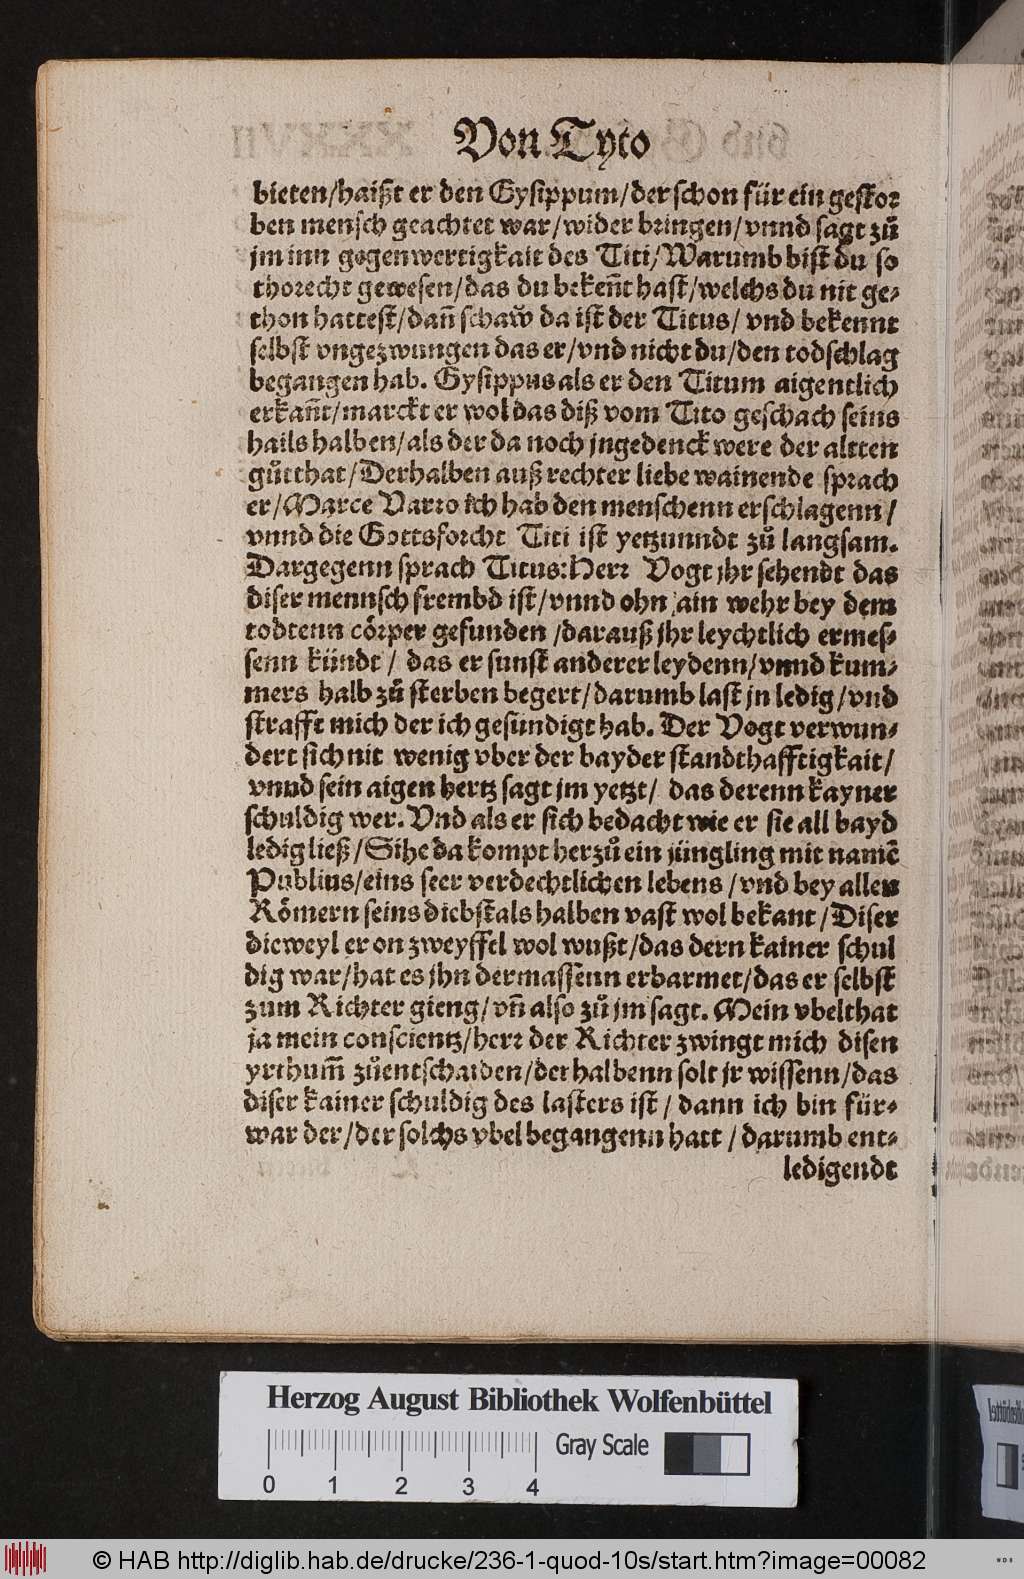 Von Tyto
bieten/haißt er den Gysippum/der schon für ein gestor
ben mensch geachtet war/wider bringen/vnnd sagt zů
jm inn gegenwertigkait des Titi/Warumb bist du so
thorecht gewesen/das du bekeñt hast/welchs du nit ge⸗
thon hattest/dañ schaw da ist der Titus/ vnd bekennt
selbst vngezwungen das er/vnd nicht du/den todschlag
begangen hab. Gysippus als er den Titum aigentlich
erkañt/marckt er wol das diß vom Tito geschach seins
hails halben/als der da noch jngedenck were der altten
gůtthat/Derhalben auß rechter liebe wainende sprach
er/Marce Varro ich hab den menschenn erschlagenn/
vnnd die Gottsforcht Titi ist yetzunndt zů langsam.
Dargegenn sprach Titus:Herr Vogt jhr sehendt das
diser mennsch frembd ist/vnnd ohn ain wehr bey dem
todtenn cörper gefunden /darauß jhr leychtlich ermes⸗
senn kündt / das er sunst anderer leydenn/vnnd kum⸗
mers halb zů sterben begert/darumb last jn ledig/vnd
strafft mich der ich gesündigt hab. Der Vogt verwun⸗
dert sich nit wenig vber der bayder standthafftigkait/
vnnd sein aigen hertz sagt jm yetzt/ das derenn kayner
schuldig wer. Vnd als er sich bedacht wie er sie all bayd
ledig ließ/Sihe da kompt herzů ein jüngling mit namẽ
Publius/eins seer verdechtlichen lebens /vnd bey allen
Römern seins diebstals halben vast wol bekant/Diser
dieweyl er on zweyffel wol wußt/das dern kainer schul
dig war/hat es jhn dermassenn erbarmet/das er selbst
zum Richter gieng/vñ also zů jm sagt. Mein vbelthat
ja mein conscientz/herr der Richter zwingt mich disen
yrthum̃ zůentschaiden/derhalbenn solt jr wissenn/das
diser kainer schuldig des lasters ist/ dann ich bin für⸗
war der/der solchs vbel begangenn hatt /darumb ent⸗
ledigendt
Herzog August Bibliothek Wolfenbüttel
0 1 2 3 4 Gray Scale
© HAB http://diglib.hab.de/drucke/236-1-quod-10s/start.htm?image=00082